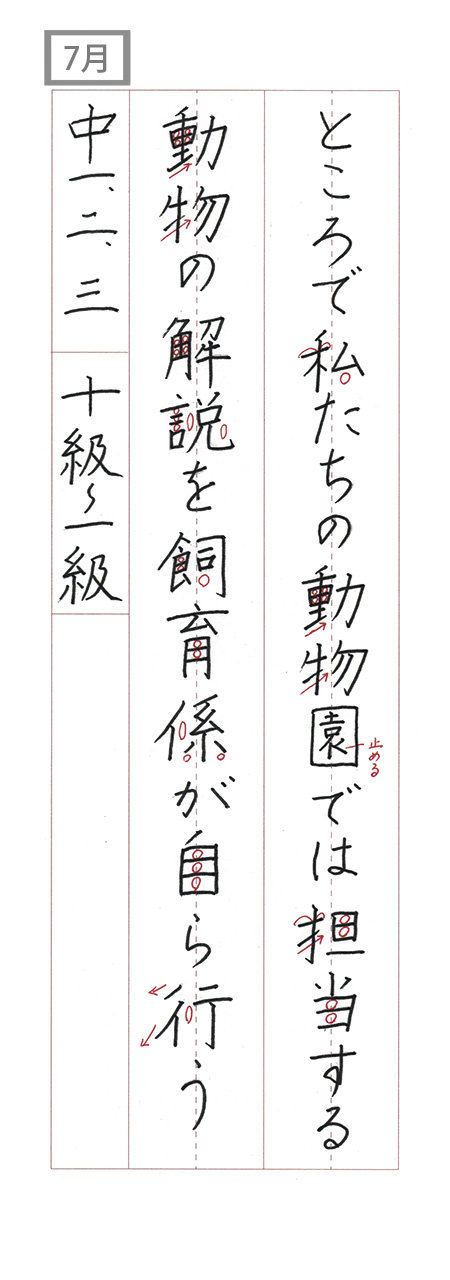 7月
ところで私たちの動物園では担当する
止める
動物の解説を飼育係が自ら行う
中一、二、三
十級〜一級